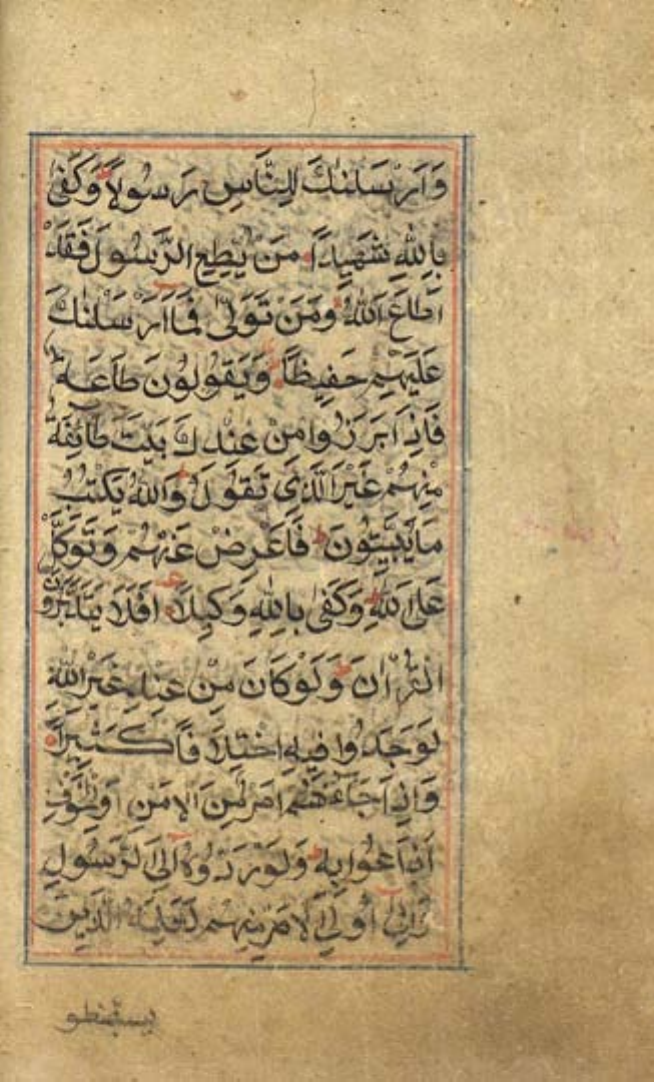 وَاَرْسَلْنٰكَ لِلنَّاسِ رَسُوْلًا وَكَفٰى
بِاللّٰهِ شَهِيْدًا مَنْ يُطِعِ الرَّسُوْلَ فَقَدْ
اَطَاعَ اللّٰهَ وَمَنْ تَوَلّٰى فَمَا اَرْسَلْنٰكَ
عَلَيْهِمْ حَفِيْظًا وَيَقُوْلُوْنَ طَاعَةٌ
فَاِذَا بَرَزُوْا مِنْ عِنْدِكَ بَيَّتَ طَآئِفَةٌ
مِنْهُمْ غَيْرَ الَّذِيْ تَقُوْلُ وَاللّٰهُ يَكْتُبُ
مَا يُبَيِّتُوْنَ فَاَعْرِضْ عَنْهُمْ وَتَوَكَّلْ
عَلَى اللّٰهِ وَكَفٰى بِاللّٰهِ وَكِيْلًا اَفَلَا يَتَدَبَّرُوْنَ
الْقُرْاٰنَ وَلَوْ كَانَ مِنْ عِنْدِ غَيْرِ اللّٰهِ
لَوَجَدُوْا فِيْهِ اخْتِلَافًا كَثِيْرًا
وَاِذَا جَآءَهُمْ اَمْرٌ مِّنَ الْاَمْنِ اَوِ الْخَوْفِ
اَذَاعُوْا بِهٖ وَلَوْ رَدُّوْهُ اِلَى الرَّسُوْلِ
وَاِلٰٓى اُولِى الْاَمْرِ مِنْهُمْ لَعَلِمَهُ الَّذِيْنَ
يستنبطو